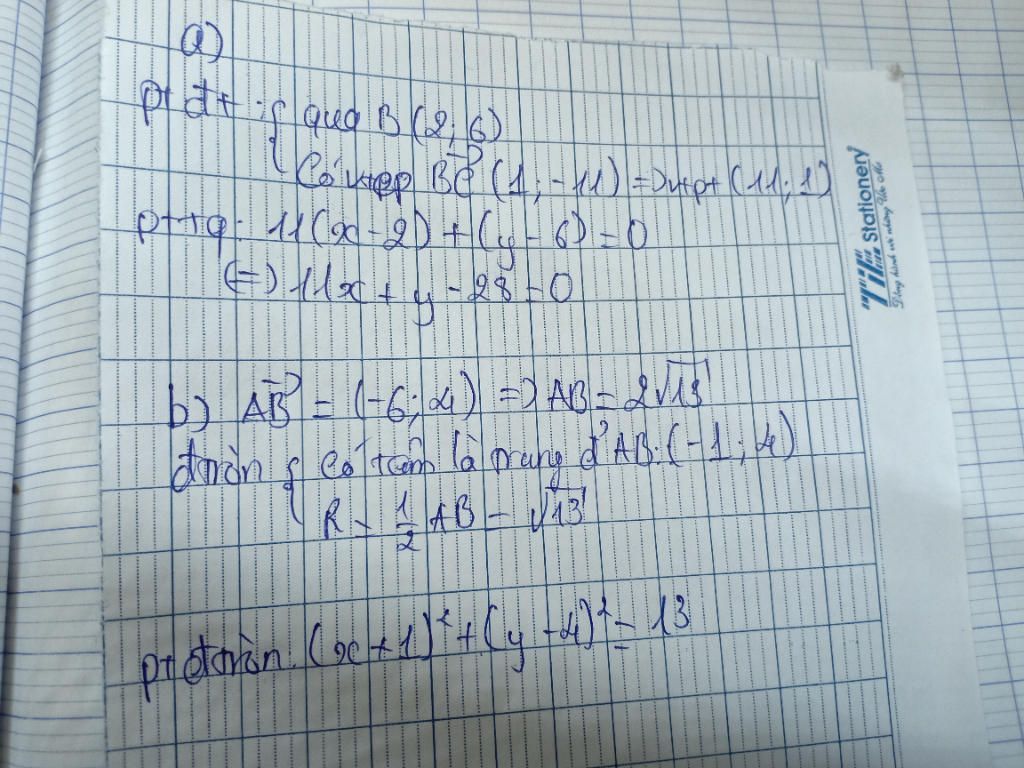 a)
pt đt : { qua B (2; 6)
Có vtcp BC (1; -11) => vtpt (11; 1)
pttq: 11(x - 2) + (y - 6) = 0
(=) 11x + y - 28 = 0
b) AB = (-6; 4) => AB = 2√13
đtròn { Có tâm là trung đ' AB: (-1; 4)
R = 1/2 AB = √13
pt đtròn: (x + 1)² + (y - 4)² = 13
TiTi Stationery